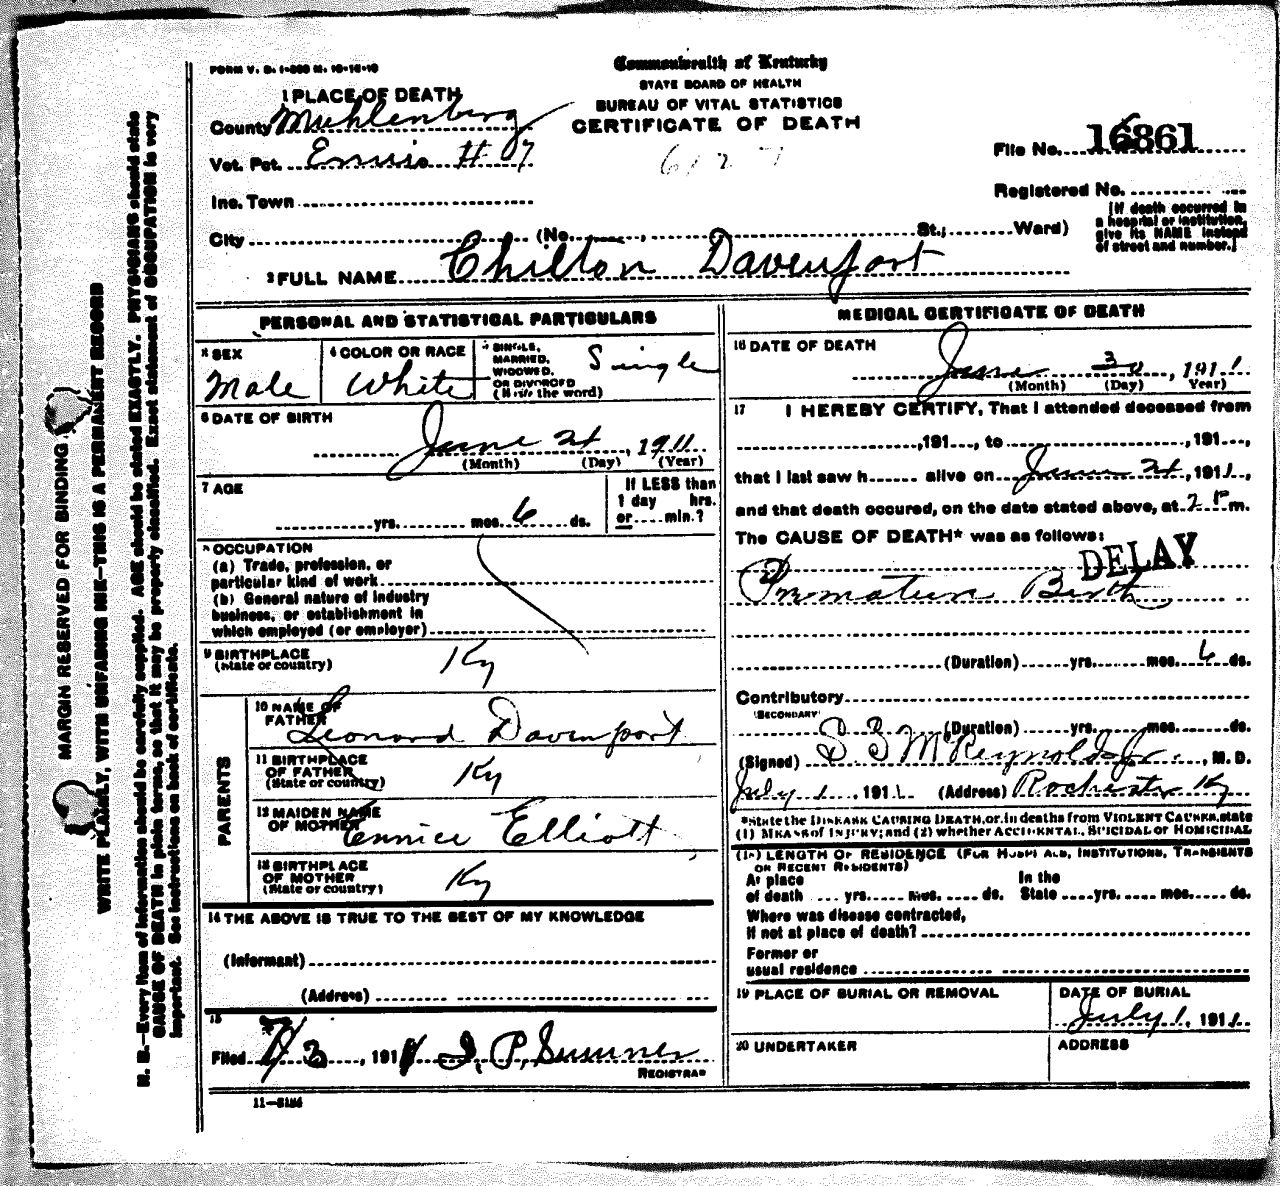 FORM V. S. 1-200 M. 10-16-10
Commonwealth of Kentucky
STATE BOARD OF HEALTH
BUREAU OF VITAL STATISTICS
CERTIFICATE OF DEATH
1 PLACE OF DEATH
County Muhlenberg
Vot. Pct. Ennis # 07
File No. 16861
Inc. Town
Registered No.
[If death occurred in
a hospital or institution,
give its NAME instead
of street and number.]
City (No. , St.; Ward)
2 FULL NAME Chilton Davenport
PERSONAL AND STATISTICAL PARTICULARS
3 SEX
Male
4 COLOR OR RACE
White
5 SINGLE,
MARRIED,
WIDOWED,
OR DIVORCED
(Write the word)
Single
6 DATE OF BIRTH
June 24, 1911
(Month) (Day) (Year)
7 AGE
yrs. mos. 6 ds.
If LESS than
1 day hrs.
or min.?
8 OCCUPATION
(a) Trade, profession, or
particular kind of work
(b) General nature of industry
business, or establishment in
which employed (or employer)
9 BIRTHPLACE
(State or country)
Ky
PARENTS
10 NAME OF
FATHER
Leonard Davenport
11 BIRTHPLACE
OF FATHER
(State or country)
Ky
12 MAIDEN NAME
OF MOTHER
Elliott
13 BIRTHPLACE
OF MOTHER
(State or country)
Ky
14 THE ABOVE IS TRUE TO THE BEST OF MY KNOWLEDGE
(Informant)
(Address)
15
Filed 7/3, 1911 I. P. Sumner
REGISTRAR
11-5184
MEDICAL CERTIFICATE OF DEATH
16 DATE OF DEATH
June 30, 1911
(Month) (Day) Year)
17 I HEREBY CERTIFY, That I attended deceased from
,191 , to ,191 ,
that I last saw h alive on June 24, 1911,
and that death occured, on the date stated above, at 2 P m.
The CAUSE OF DEATH* was as follows:
DELAY
Premature Birth
(Duration) yrs. mos. 6 ds.
Contributory
(SECONDARY)
(Duration) yrs. mos. ds.
(Signed) S S McReynolds Jr., M. D.
July 1, 1911 (Address) Rochester Ky
*State the DISEASE CAUSING DEATH, or, in deaths from VIOLENT CAUSES, state
(1) MEANS of INJURY; and (2) whether ACCIDENTAL, SUICIDAL or HOMICIDAL
(18) LENGTH OF RESIDENCE (FOR HOSPITALS, INSTITUTIONS, TRANSIENTS
OR RECENT RESIDENTS)
At place
of death yrs. mos. ds.
In the
State yrs. mos. ds.
Where was disease contracted,
If not at place of death?
Former or
usual residence
19 PLACE OF BURIAL OR REMOVAL
DATE OF BURIAL
July 1, 1911.
20 UNDERTAKER
ADDRESS
MARGIN RESERVED FOR BINDING
WRITE PLAINLY, WITH UNFADING INK—THIS IS A PERMANENT RECORD
N. B.—Every item of information should be carefully supplied. AGE should be stated EXACTLY. PHYSICIANS should state
CAUSE OF DEATH in plain terms, so that it may be properly classified. Exact statement of OCCUPATION is very
important. See instructions on back of certificate.